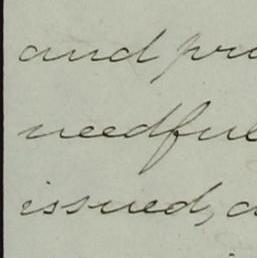 and pro
needful
issued, a